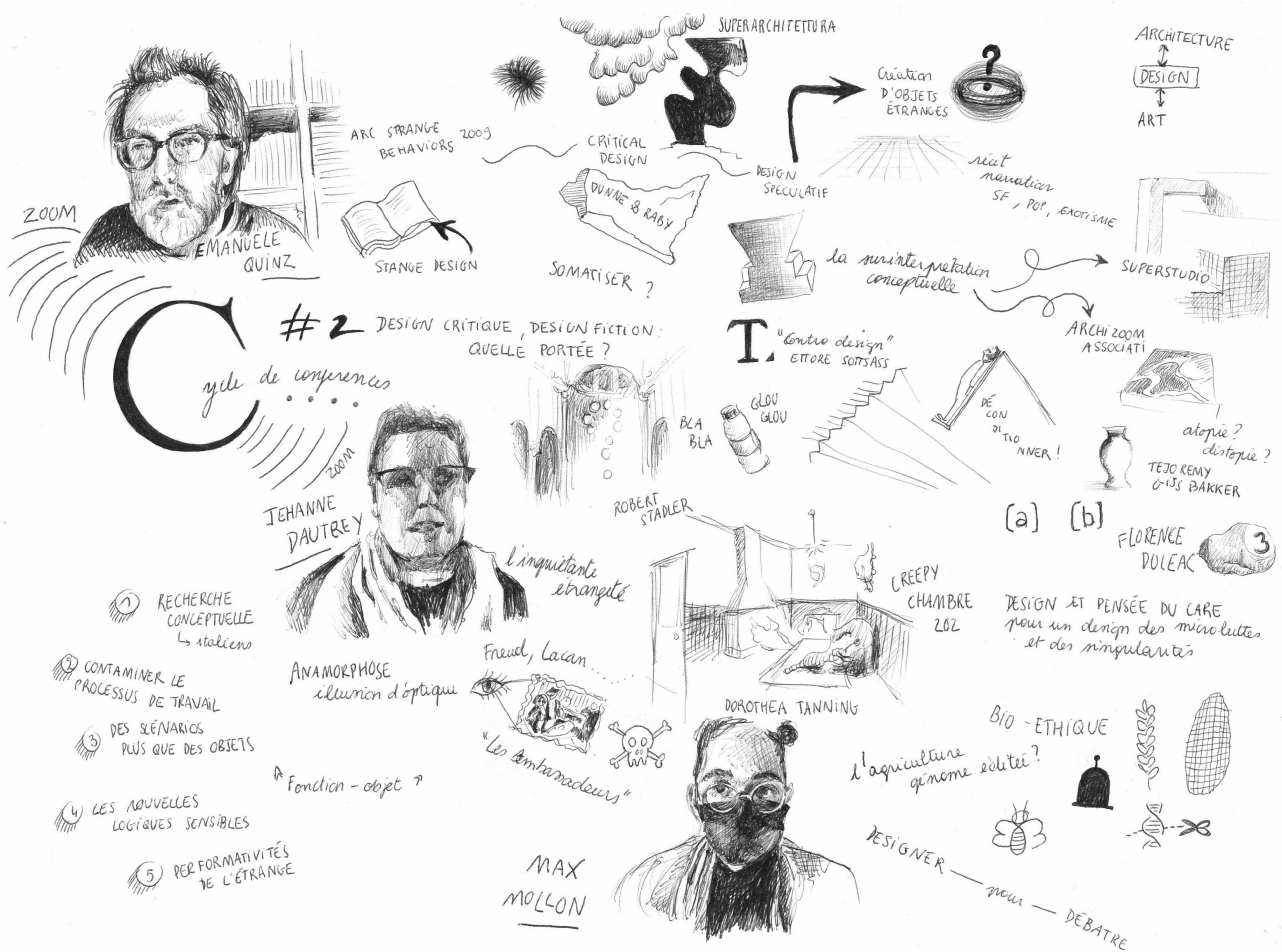 SUPERARCHITETTURA
ARCHITECTURE
DESIGN
ART
Création
D'OBJETS
ÉTRANGES
?
ARC STRANGE 2009
BEHAVIORS
CRITICAL
DESIGN
DESIGN
SPÉCULATIF
récit
narration
SF, POP, EXOTISME
DUNNE & RABY
ZOOM
EMANUELE
QUINZ
STANGE DESIGN
SOMATISER ?
la surinterprétation
conceptuelle
SUPERSTUDIO
ARCHIZOOM
ASSOCIATI
#2 DESIGN CRITIQUE, DESIGN FICTION:
QUELLE PORTÉE ?
Cycle de conferences
T. "Contro design"
ETTORE SOTTSASS
BLA
BLA
GLOU
GLOU
DÉ
CON
DI TIO
NNER !
atopie ?
distopie ?
TEJO REMY
GIJS BAKKER
ZOOM
JEHANNE
DAUTREY
ROBERT
STADLER
[a] [b]
FLORENCE
DOLEAC
3
l'inquiétante
étrangeté
CREEPY
CHAMBRE
202
DESIGN ET PENSÉE DU CARE
pour un design des microluttes
et des singularités
1 RECHERCHE
CONCEPTUELLE
↳ italiens
2 CONTAMINER LE
PROCESSUS DE TRAVAIL
3 DES SCÉNARIOS
PLUS QUE DES OBJETS
4 LES NOUVELLES
LOGIQUES SENSIBLES
5 PERFORMATIVITÉS
DE L'ÉTRANGE
ANAMORPHOSE
illusion d'optique
Freud, Lacan...
"Les Ambassadeurs"
Fonction - objet
DOROTHEA TANNING
BIO - ETHIQUE
l'agriculture
génome éditée ?
MAX
MOLLON
DESIGNER — pour — DÉBATRE